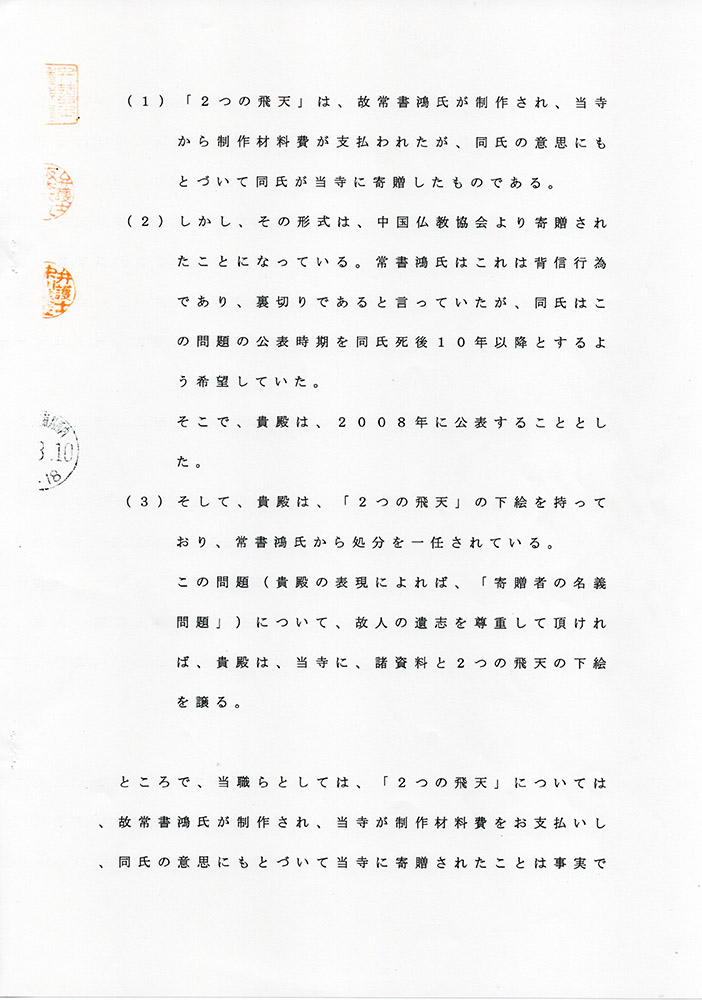 (1)「2つの飛天」は、故常書鴻氏が制作され、当寺
から制作材料費が支払われたが、同氏の意思にも
とづいて同氏が当寺に寄贈したものである。
(2)しかし、その形式は、中国仏教協会より寄贈され
たことになっている。常書鴻氏はこれは背信行為
であり、裏切りであると言っていたが、同氏はこ
の問題の公表時期を同氏死後10年以降とするよ
う希望していた。
そこで、貴殿は、2008年に公表することとし
た。
(3)そして、貴殿は、「2つの飛天」の下絵を持って
おり、常書鴻氏から処分を一任されている。
この問題(貴殿の表現によれば、「寄贈者の名義
問題」)について、故人の遺志を尊重して頂けれ
ば、貴殿は、当寺に、諸資料と2つの飛天の下絵
を譲る。
ところで、当職らとしては、「2つの飛天」については
、故常書鴻氏が制作され、当寺が制作材料費をお支払いし
、同氏の意思にもとづいて当寺に寄贈されたことは事実で
弁護士
弁護士
3.10
.18